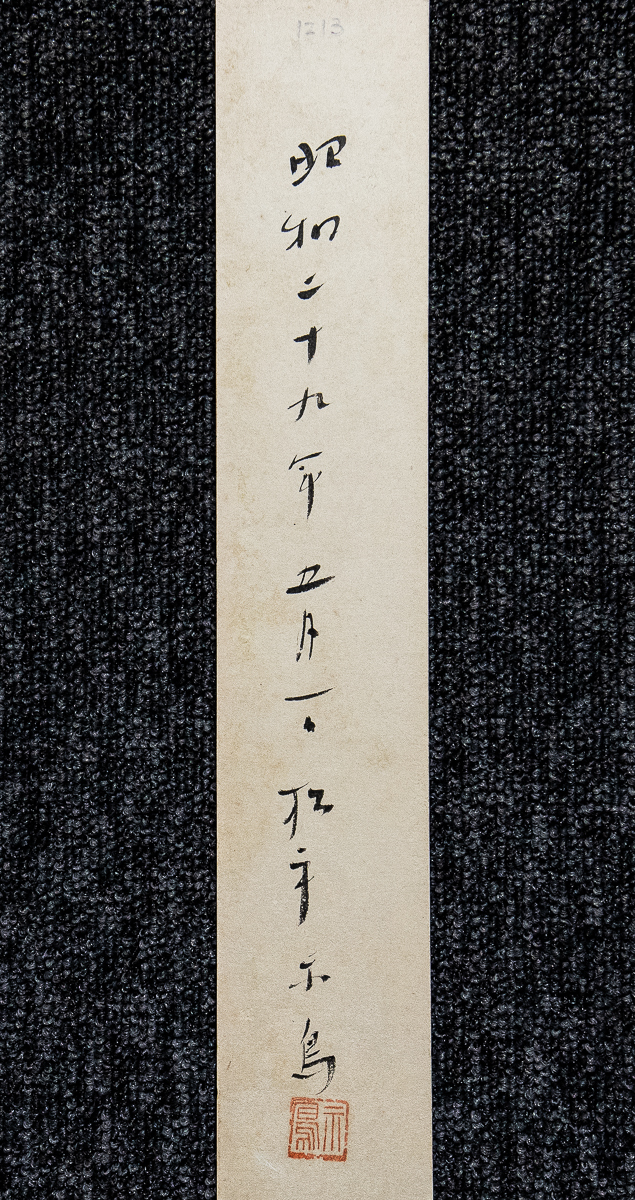 1213
昭和二十九年 五月一日 松 鳥